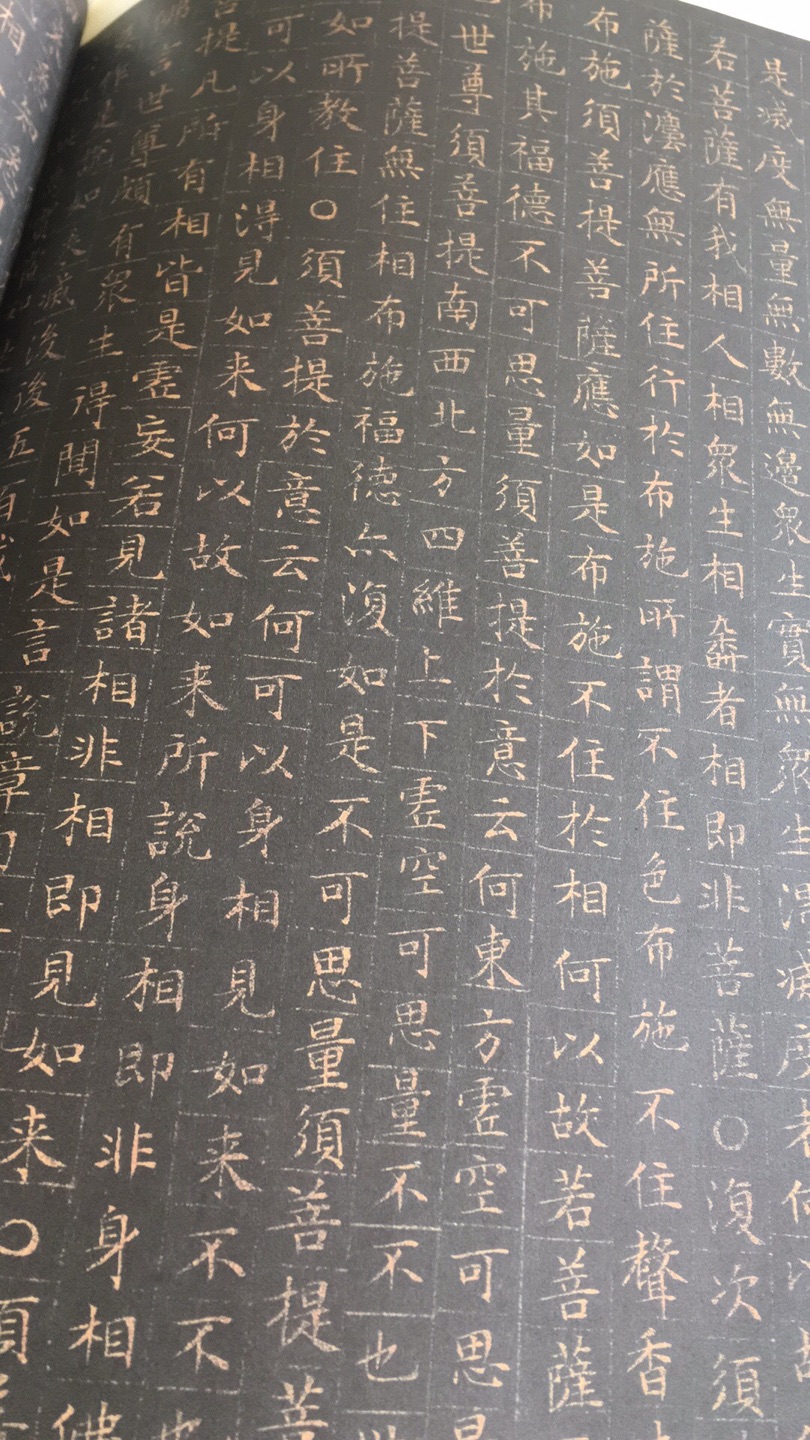 是滅度無量無數無邊衆生實無衆生得滅度者何以故
若菩薩有我相人相衆生相壽者相即非菩薩○復次須
薩於法應無所住行於布施所謂不住色布施不住聲香
布施須菩提菩薩應如是布施不住於相何以故若菩薩
布施其福德不可思量須菩提於意云何東方虛空可思
世尊須菩提南西北方四維上下虛空可思量不不也
提菩薩無住相布施福德亦復如是不可思量須菩提菩
如所教住○須菩提於意云何可以身相見如来不不
可以身相得見如来何以故如来所說身相即非身相佛
菩提凡所有相皆是虛妄若見諸相非相即見如来○須
言世尊頗有衆生得聞如是言說章句
如来滅後後五百歲